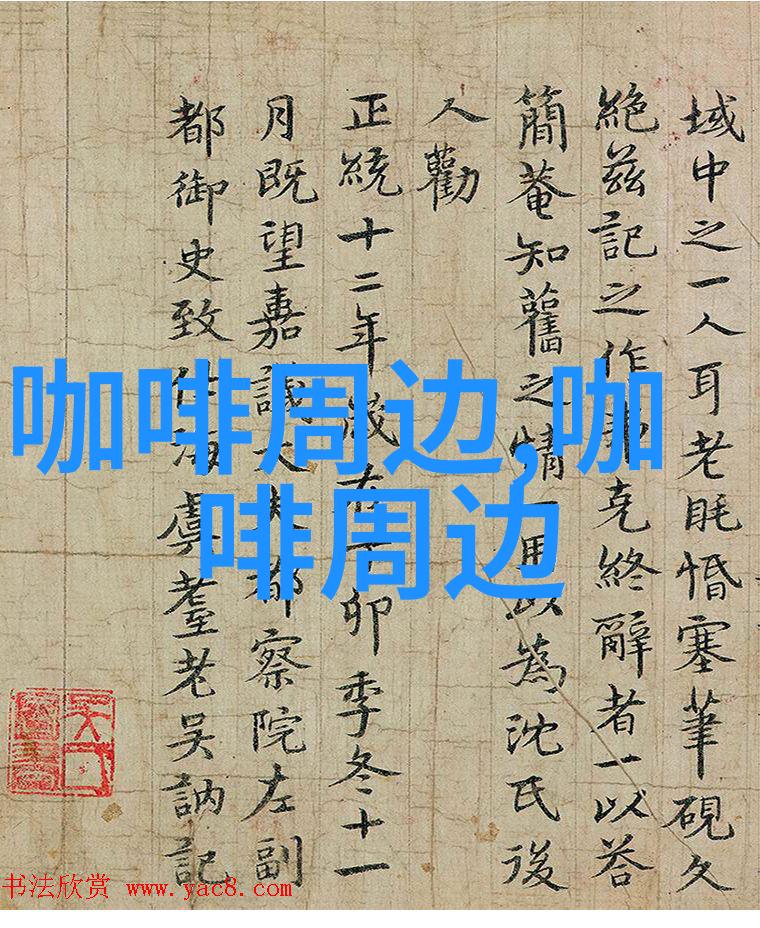 域中之一人耳老眊惛塞筆硯久
絶兹記之作弗克終辭者一以荅
簡菴知舊之情一用以為沈氏後
人勸
正統十二年歲在丁卯季冬十一
月既望嘉議大夫都察院左副
都御史致仕海虞耋老吳訥記
咖啡周边,咖
啡周边
书法欣赏 www.yac8.com